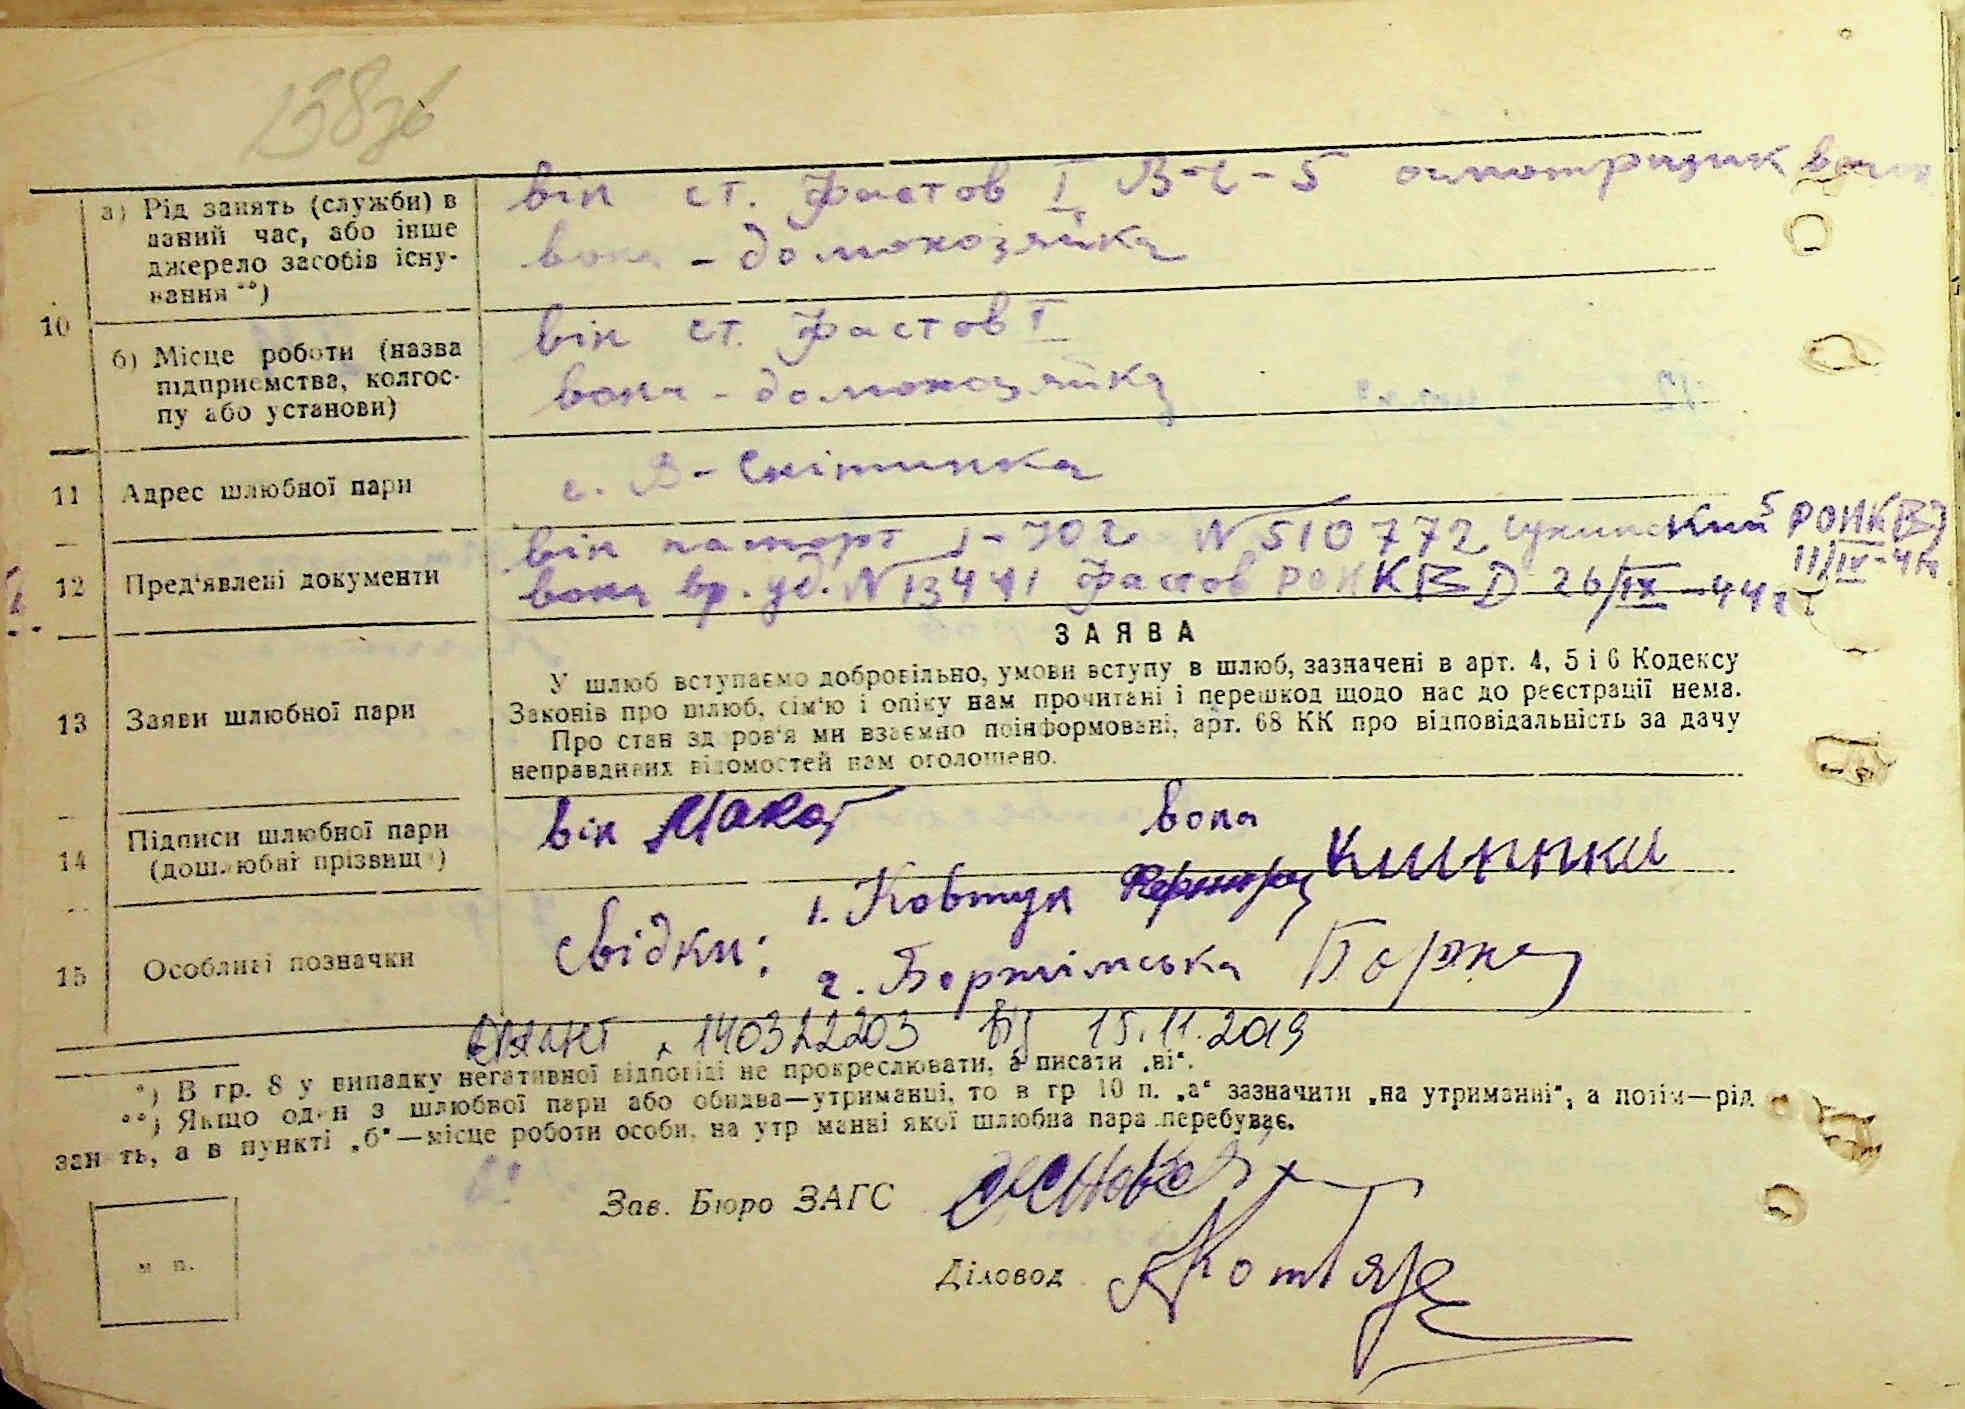 а) Рід занять (служби) в даний час, або інше джерело засобів існування **)
він ст. Фастов I В-ч-5 осмотрщик ваг
вона - домохозяйка
10
б) Місце роботи (назва підприємства, колгоспу або установи)
він ст. Фастов I
вона - домохозяйка
11 Адрес шлюбної пари
с. В-Снітинка
12 Пред'явлені документи
він паспорт № 510772 РОНКВД
11/IV-41
вона вр. уд. № 13441 Фастов РОНКВД 26/IX-44 г
13 Заяви шлюбної пари
ЗАЯВА
У шлюб вступаємо добровільно, умови вступу в шлюб, зазначені в арт. 4, 5 і 6 Кодексу
Законів про шлюб, сім'ю і опіку нам прочитані і перешкод щодо нас до реєстрації нема.
Про стан здоров'я ми взаємно поінформовані, арт. 68 КК про відповідальність за дачу
неправдивих відомостей нам оголошено.
14 Підписи шлюбної пари (дошлюбні прізвища)
він вона
15 Особливі позначки
свідки: 1. Ковтун
2.
140322203 від 15.11.2019
*) В гр. 8 у випадку негативної відповіді не прокреслювати, а писати „ні“.
**) Якщо один з шлюбної пари або обидва—утриманці, то в гр 10 п. „а“ зазначити „на утриманні“, а потім—рід
занять, а в пункті „б“—місце роботи особи, на утриманні якої шлюбна пара перебуває.
Зав. Бюро ЗАГС
Діловод
м п.